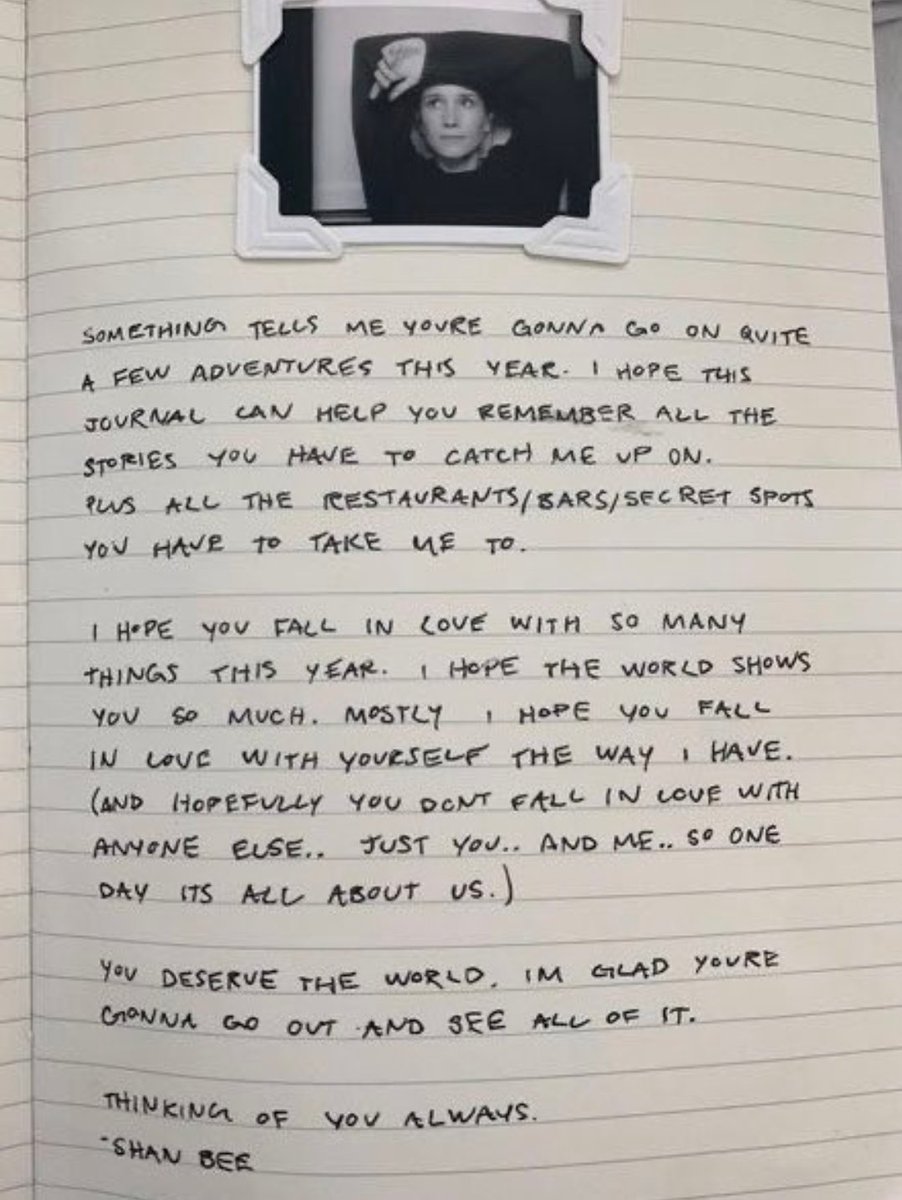 SOMETHING TELLS ME YOURE GONNA GO ON QUITE
A FEW ADVENTURES THIS YEAR. I HOPE THIS
JOURNAL CAN HELP YOU REMEMBER ALL THE
STORIES YOU HAVE TO CATCH ME UP ON.
PLUS ALL THE RESTAURANTS/BARS/SECRET SPOTS
YOU HAVE TO TAKE ME TO.
I HOPE YOU FALL IN LOVE WITH SO MANY
THINGS THIS YEAR. I HOPE THE WORLD SHOWS
YOU SO MUCH. MOSTLY I HOPE YOU FALL
IN LOVE WITH YOURSELF THE WAY I HAVE.
(AND HOPEFULLY YOU DONT FALL IN LOVE WITH
ANYONE ELSE.. JUST YOU.. AND ME.. SO ONE
DAY ITS ALL ABOUT US.)
YOU DESERVE THE WORLD. IM GLAD YOURE
GONNA GO OUT AND SEE ALL OF IT.
THINKING OF YOU ALWAYS.
-SHAN BEE